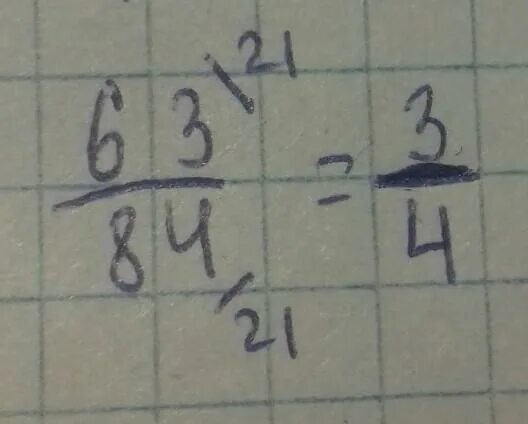 63 \21
84 /21
= 3
4